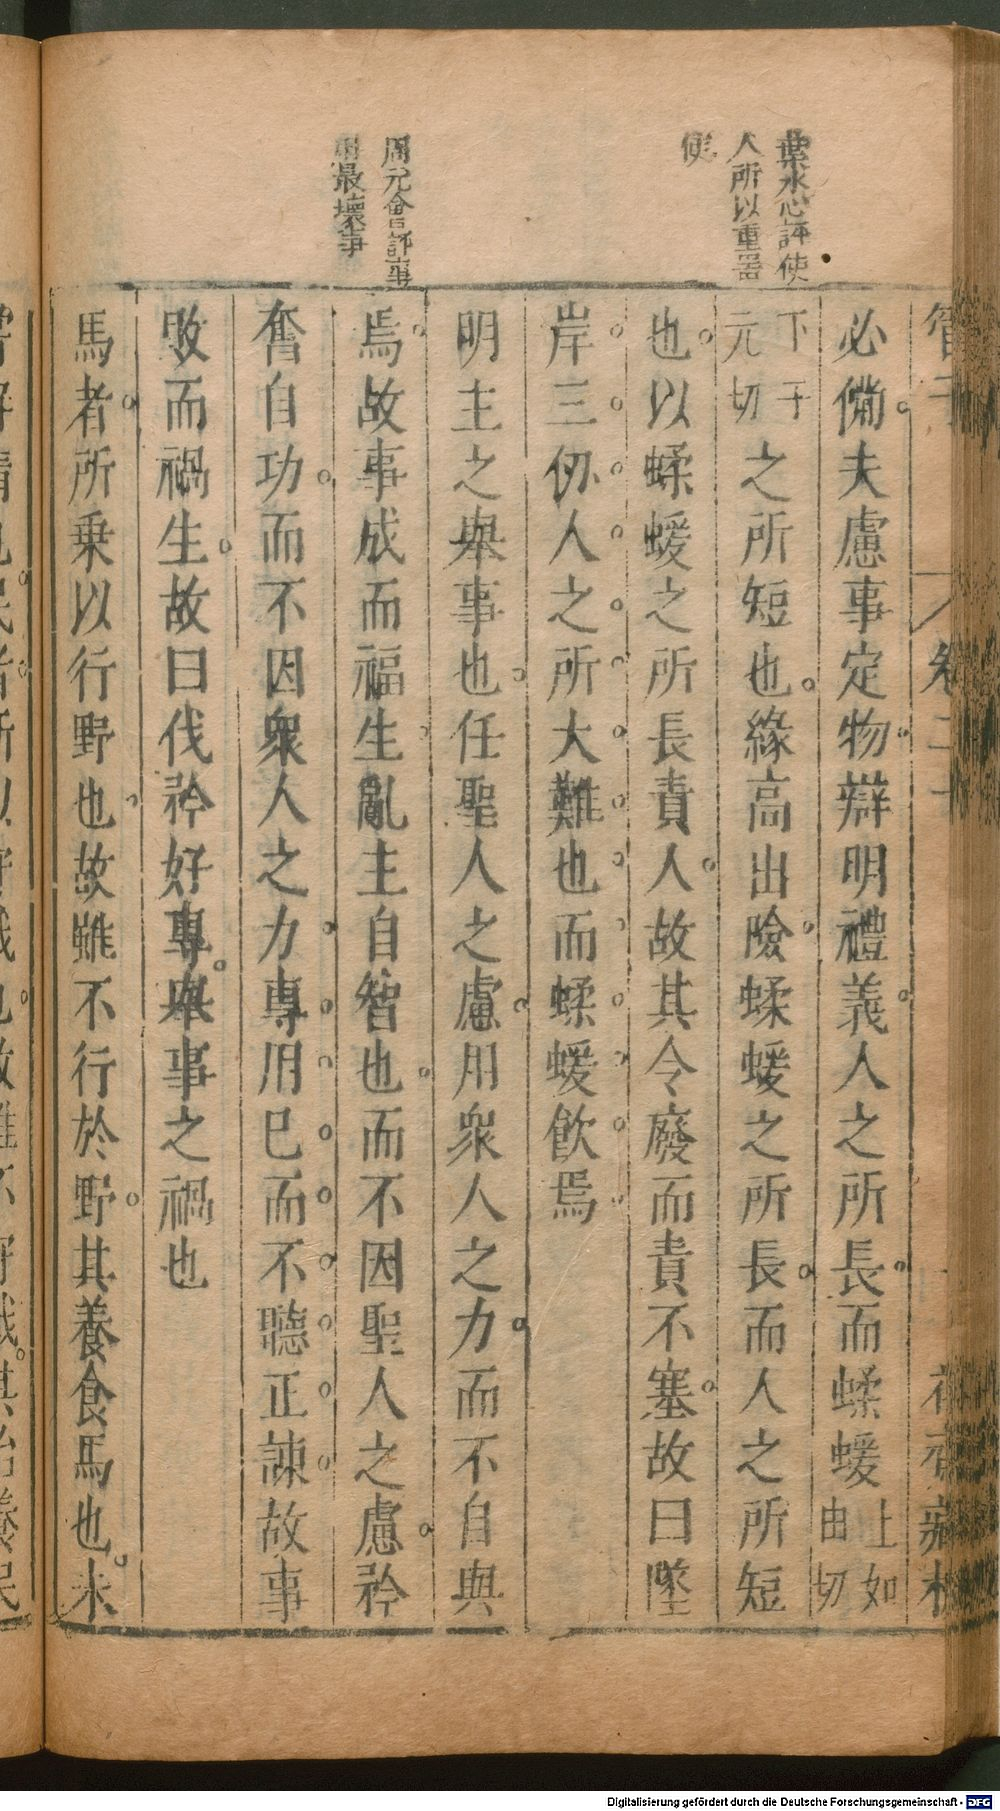 葉水心評使
人所以重器
使
周元會評專
用最壞事
管子
卷二十
花齋藏板
必備夫慮事定物辯明禮義人之所長而蝚蝯上如由切
下于元切之所短也緣高出險蝚蝯之所長而人之所短
也以蝚蝯之所長責人故其令廢而責不塞故曰墜
岸三仞人之所大難也而蝚蝯飲焉
明主之舉事也任聖人之慮用衆人之力而不自與
焉故事成而福生亂主自智也而不因聖人之慮矜
奮自功而不因衆人之力專用已而不聽正諫故事
敗而禍生故曰伐矜好專舉事之禍也
馬者所乗以行野也故雖不行於野其養食馬也未
Digitalisierung gefördert durch die Deutsche Forschungsgemeinschaft - DFG